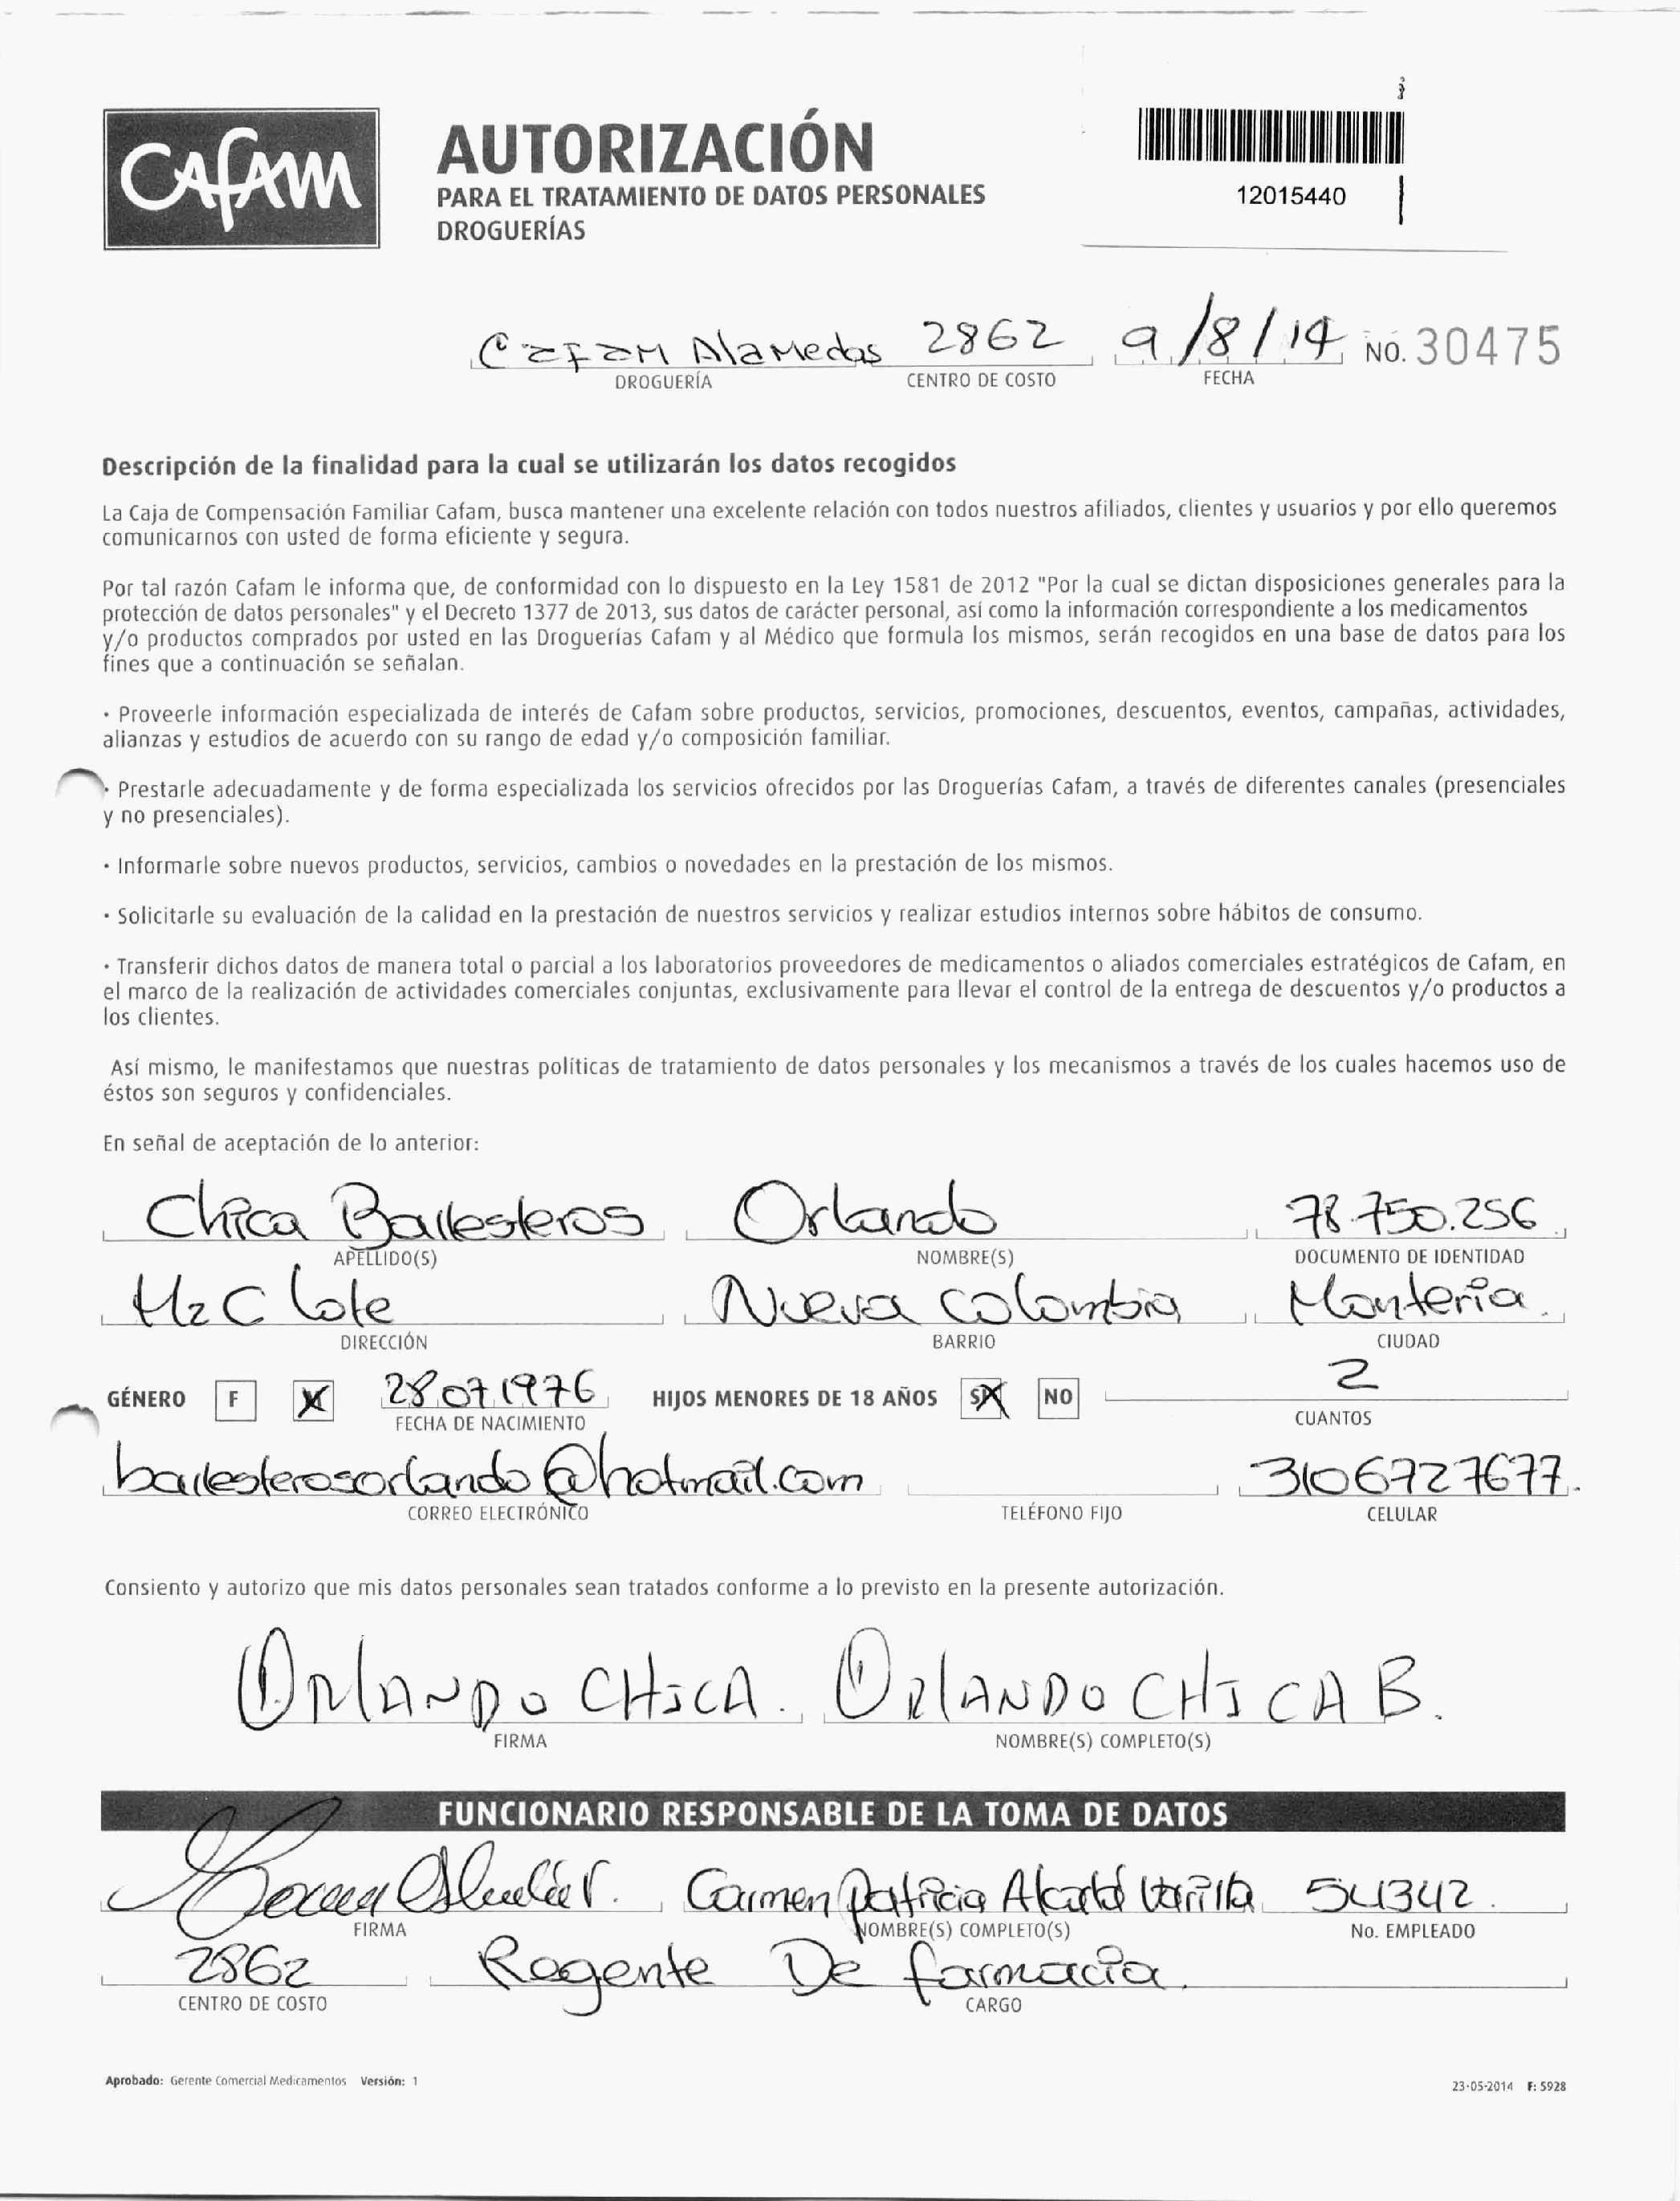 CAFAM
AUTORIZACIÓN
PARA EL TRATAMIENTO DE DATOS PERSONALES
DROGUERÍAS
12015440
Cafam Alamedas 2862 9/8/14 NO. 30475
DROGUERÍA CENTRO DE COSTO FECHA
Descripción de la finalidad para la cual se utilizarán los datos recogidos
La Caja de Compensación Familiar Cafam, busca mantener una excelente relación con todos nuestros afiliados, clientes y usuarios y por ello queremos
comunicarnos con usted de forma eficiente y segura.
Por tal razón Cafam le informa que, de conformidad con lo dispuesto en la Ley 1581 de 2012 "Por la cual se dictan disposiciones generales para la
protección de datos personales" y el Decreto 1377 de 2013, sus datos de carácter personal, así como la información correspondiente a los medicamentos
y/o productos comprados por usted en las Droguerías Cafam y al Médico que formula los mismos, serán recogidos en una base de datos para los
fines que a continuación se señalan.
· Proveerle información especializada de interés de Cafam sobre productos, servicios, promociones, descuentos, eventos, campañas, actividades,
alianzas y estudios de acuerdo con su rango de edad y/o composición familiar.
· Prestarle adecuadamente y de forma especializada los servicios ofrecidos por las Droguerías Cafam, a través de diferentes canales (presenciales
y no presenciales).
· Informarle sobre nuevos productos, servicios, cambios o novedades en la prestación de los mismos.
· Solicitarle su evaluación de la calidad en la prestación de nuestros servicios y realizar estudios internos sobre hábitos de consumo.
· Transferir dichos datos de manera total o parcial a los laboratorios proveedores de medicamentos o aliados comerciales estratégicos de Cafam, en
el marco de la realización de actividades comerciales conjuntas, exclusivamente para llevar el control de la entrega de descuentos y/o productos a
los clientes.
Así mismo, le manifestamos que nuestras políticas de tratamiento de datos personales y los mecanismos a través de los cuales hacemos uso de
éstos son seguros y confidenciales.
En señal de aceptación de lo anterior:
Chica Ballesteros Orlando 78.750.256
APELLIDO(S) NOMBRE(S) DOCUMENTO DE IDENTIDAD
Mz C lote Nueva Colombia Monteria.
DIRECCIÓN BARRIO CIUDAD
GÉNERO F X 28 07 1976 HIJOS MENORES DE 18 AÑOS SI NO 2
FECHA DE NACIMIENTO CUANTOS
ballesterosorlando@hotmail.com 3106727677.
CORREO ELECTRÓNICO TELÉFONO FIJO CELULAR
Consiento y autorizo que mis datos personales sean tratados conforme a lo previsto en la presente autorización.
ORLANDO CHICA. ORLANDO CHICA B.
FIRMA NOMBRE(S) COMPLETO(S)
FUNCIONARIO RESPONSABLE DE LA TOMA DE DATOS
Carmen Patricia 54342
FIRMA NOMBRE(S) COMPLETO(S) No. EMPLEADO
2862 Regente De farmacia
CENTRO DE COSTO CARGO
Aprobado: Gerente Comercial Medicamentos Versión: 1
23-05-2014 F: 5928